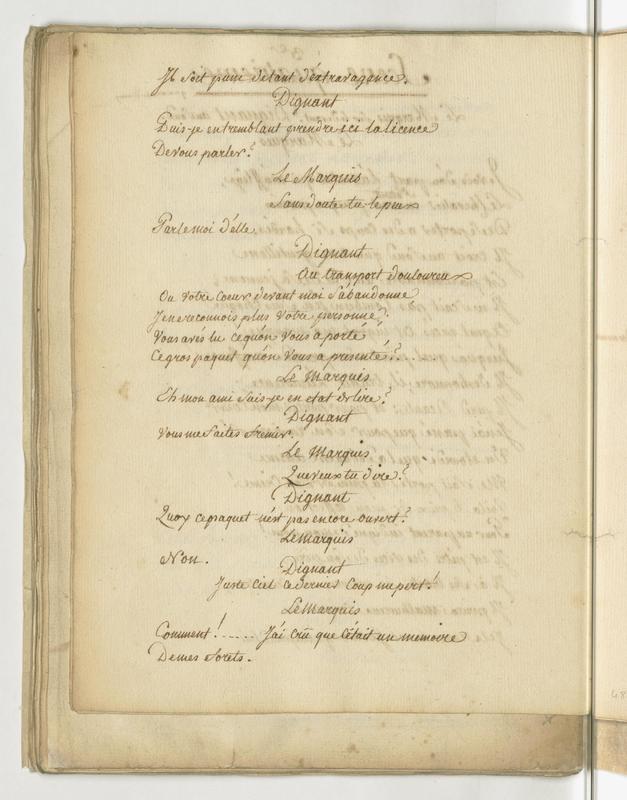 Il soit puni de tant d'extravagance.
Dignant
Puis-je en tremblant prendre ici la licence
De vous parler?
Le Marquis
Sans doute tu le peux
Parle moi d'elle.
Dignant
Au transport douloureux
Ou votre coeur devant moi s'abandonne
Je ne reconnois plus votre personne?
Vous avés lu cé qu'on vous a porté
Ce gros paquet qu'on vous a presenté?...
Le Marquis
Eh mon ami suis-je en etat de lire?
Dignant
Vous me faites fremir.
Le Marquis
Que veux tu dire?
Dignant
Quoy ce paquet n'est pas encore ouvert?
Le marquis
Non.
Dignant
Juste Ciel ce dernier Coup me pert!
Le Marquis
Comment!..... J'ai crû que c'était un memoire
De mes forets.